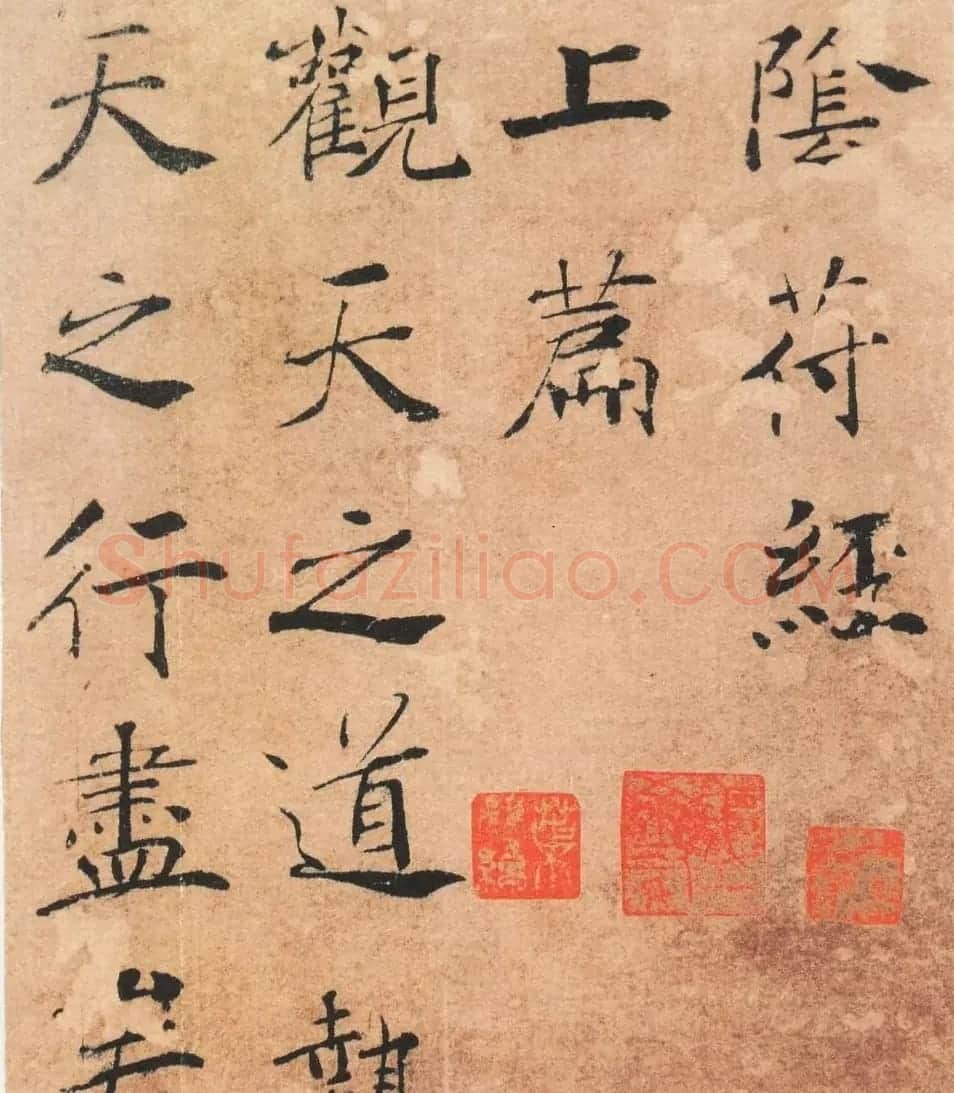 陰符經
上篇
觀天之道執
天之行盡矣
Shufaziliao.COM